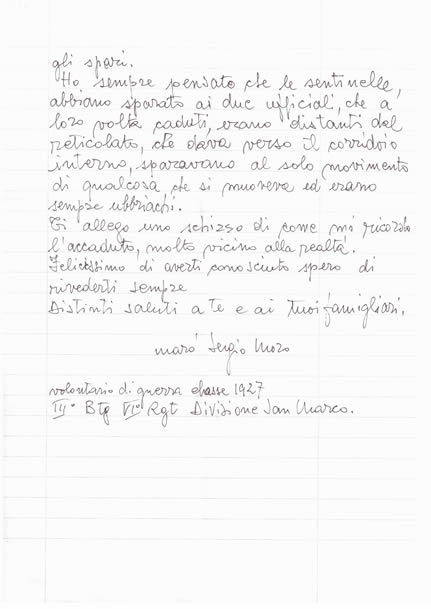 gli spari.
Ho sempre pensato che le sentinelle,
abbiano sparato ai due ufficiali, che a
loro volta caduti, erano distanti dal
reticolato, che dava verso il corridoio
interno, sparavano al solo movimento
di qualcosa, che si muoveva ed erano
sempre ubbriachi.
Ti allego uno schizzo di come mi ricordo
l'accaduto, molto vicino alla realtà.
Felicissimo di averti conosciuto spero di
rivederti sempre
Distinti saluti a te e ai tuoi famigliari.
marò Sergio Moro
volontario di guerra classe 1927
III° Btg VI° Rgt Divisione San Marco.